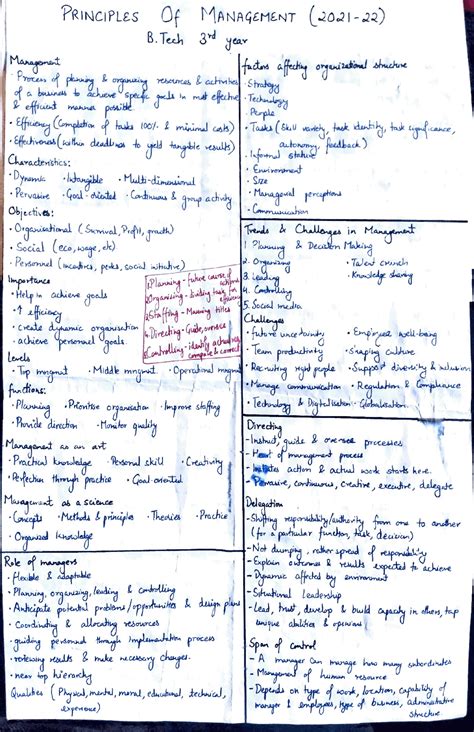 PRINCIPLES OF MANAGEMENT (2021-22)
B.Tech 3rd year
Management
• Process of planning & organizing resources & activities
of a business to achieve specific goals in most effective
& efficient manner possible.
• Efficiency (Completion of tasks 100% & minimal costs)
• Effectiveness (within deadlines to yield tangible results)
Characteristics:
• Dynamic • Intangible • Multi-dimensional
• Pervasive • Goal-oriented • Continuous & group activity
Objectives:
• Organisational (Survival, Profit, growth)
• Social (eco, wage, etc)
• Personnel (incentives, perks, social initiative)
Importance
• Help in achieve goals
• ↑ efficiency
• create dynamic organisation
• achieve personnel goals.
1. Planning - future course of
2. Organizing -
3. Staffing - Manning
4. Directing - Guide, oversee
5. Controlling - identify actual
compare & correct
Levels
• Top mngmnt • Middle mngmnt • Operational mngmnt
functions:
• Planning • Prioritise organisation • Improve staffing
• Provide direction • Monitor quality
Management as an art
• Practical knowledge • Personal skill • Creativity
• Perfection through practice • Goal oriented
Management as a Science
• Concepts • Methods & principles • Theories • Practice
• Organized knowledge
Role of managers
• flexible & adaptable
• Planning, organizing, leading & controlling
• Anticipate potential problems/opportunities & design plans
• Coordinating & allocating resources
• guiding personnel through implementation process
• reviewing results & make necessary changes.
• near top hierarchy
Qualities (Physical, mental, moral, educational, technical,
experience)
factors affecting organizational structure
• Strategy
• Technology
• People
• Tasks (Skill variety, task identity, task significance,
autonomy, feedback)
• Informal
• Environment
• Size
• Managerial perceptions
• Communication
Trends & Challenges in Management
1. Planning & Decision Making
2. Organizing • Talent crunch
3. Leading • Knowledge sharing
4. Controlling
5. Social media
Challenges
• future uncertainty • Employee well-being
• Team productivity • Shaping culture
• Recruiting right people • Support diversity & inclusion
• Manage communication • Regulation & Compliance
• Technology & Digitalisation • Globalisation.
Directing
- Instruct, guide & oversee processes
- Heart of management process
- Initiates action & actual work starts here.
- Pervasive, continuous, creative, executive, delegate
Delegation
- Shifting responsibility/authority from one to another
(for a particular function, task, decision)
- Not dumping, rather spread of responsibility
- Explain outcomes & results expected to achieve
- Dynamic affected by environment
- Situational Leadership
- Lead, trust, develop & build capacity in others, tap
unique abilities & opinions
Span of control
- A manager can manage how many subordinates
- Management of human resource
- Depends on type of work, location, capability of
manager & employees, type of business, administrative
structure